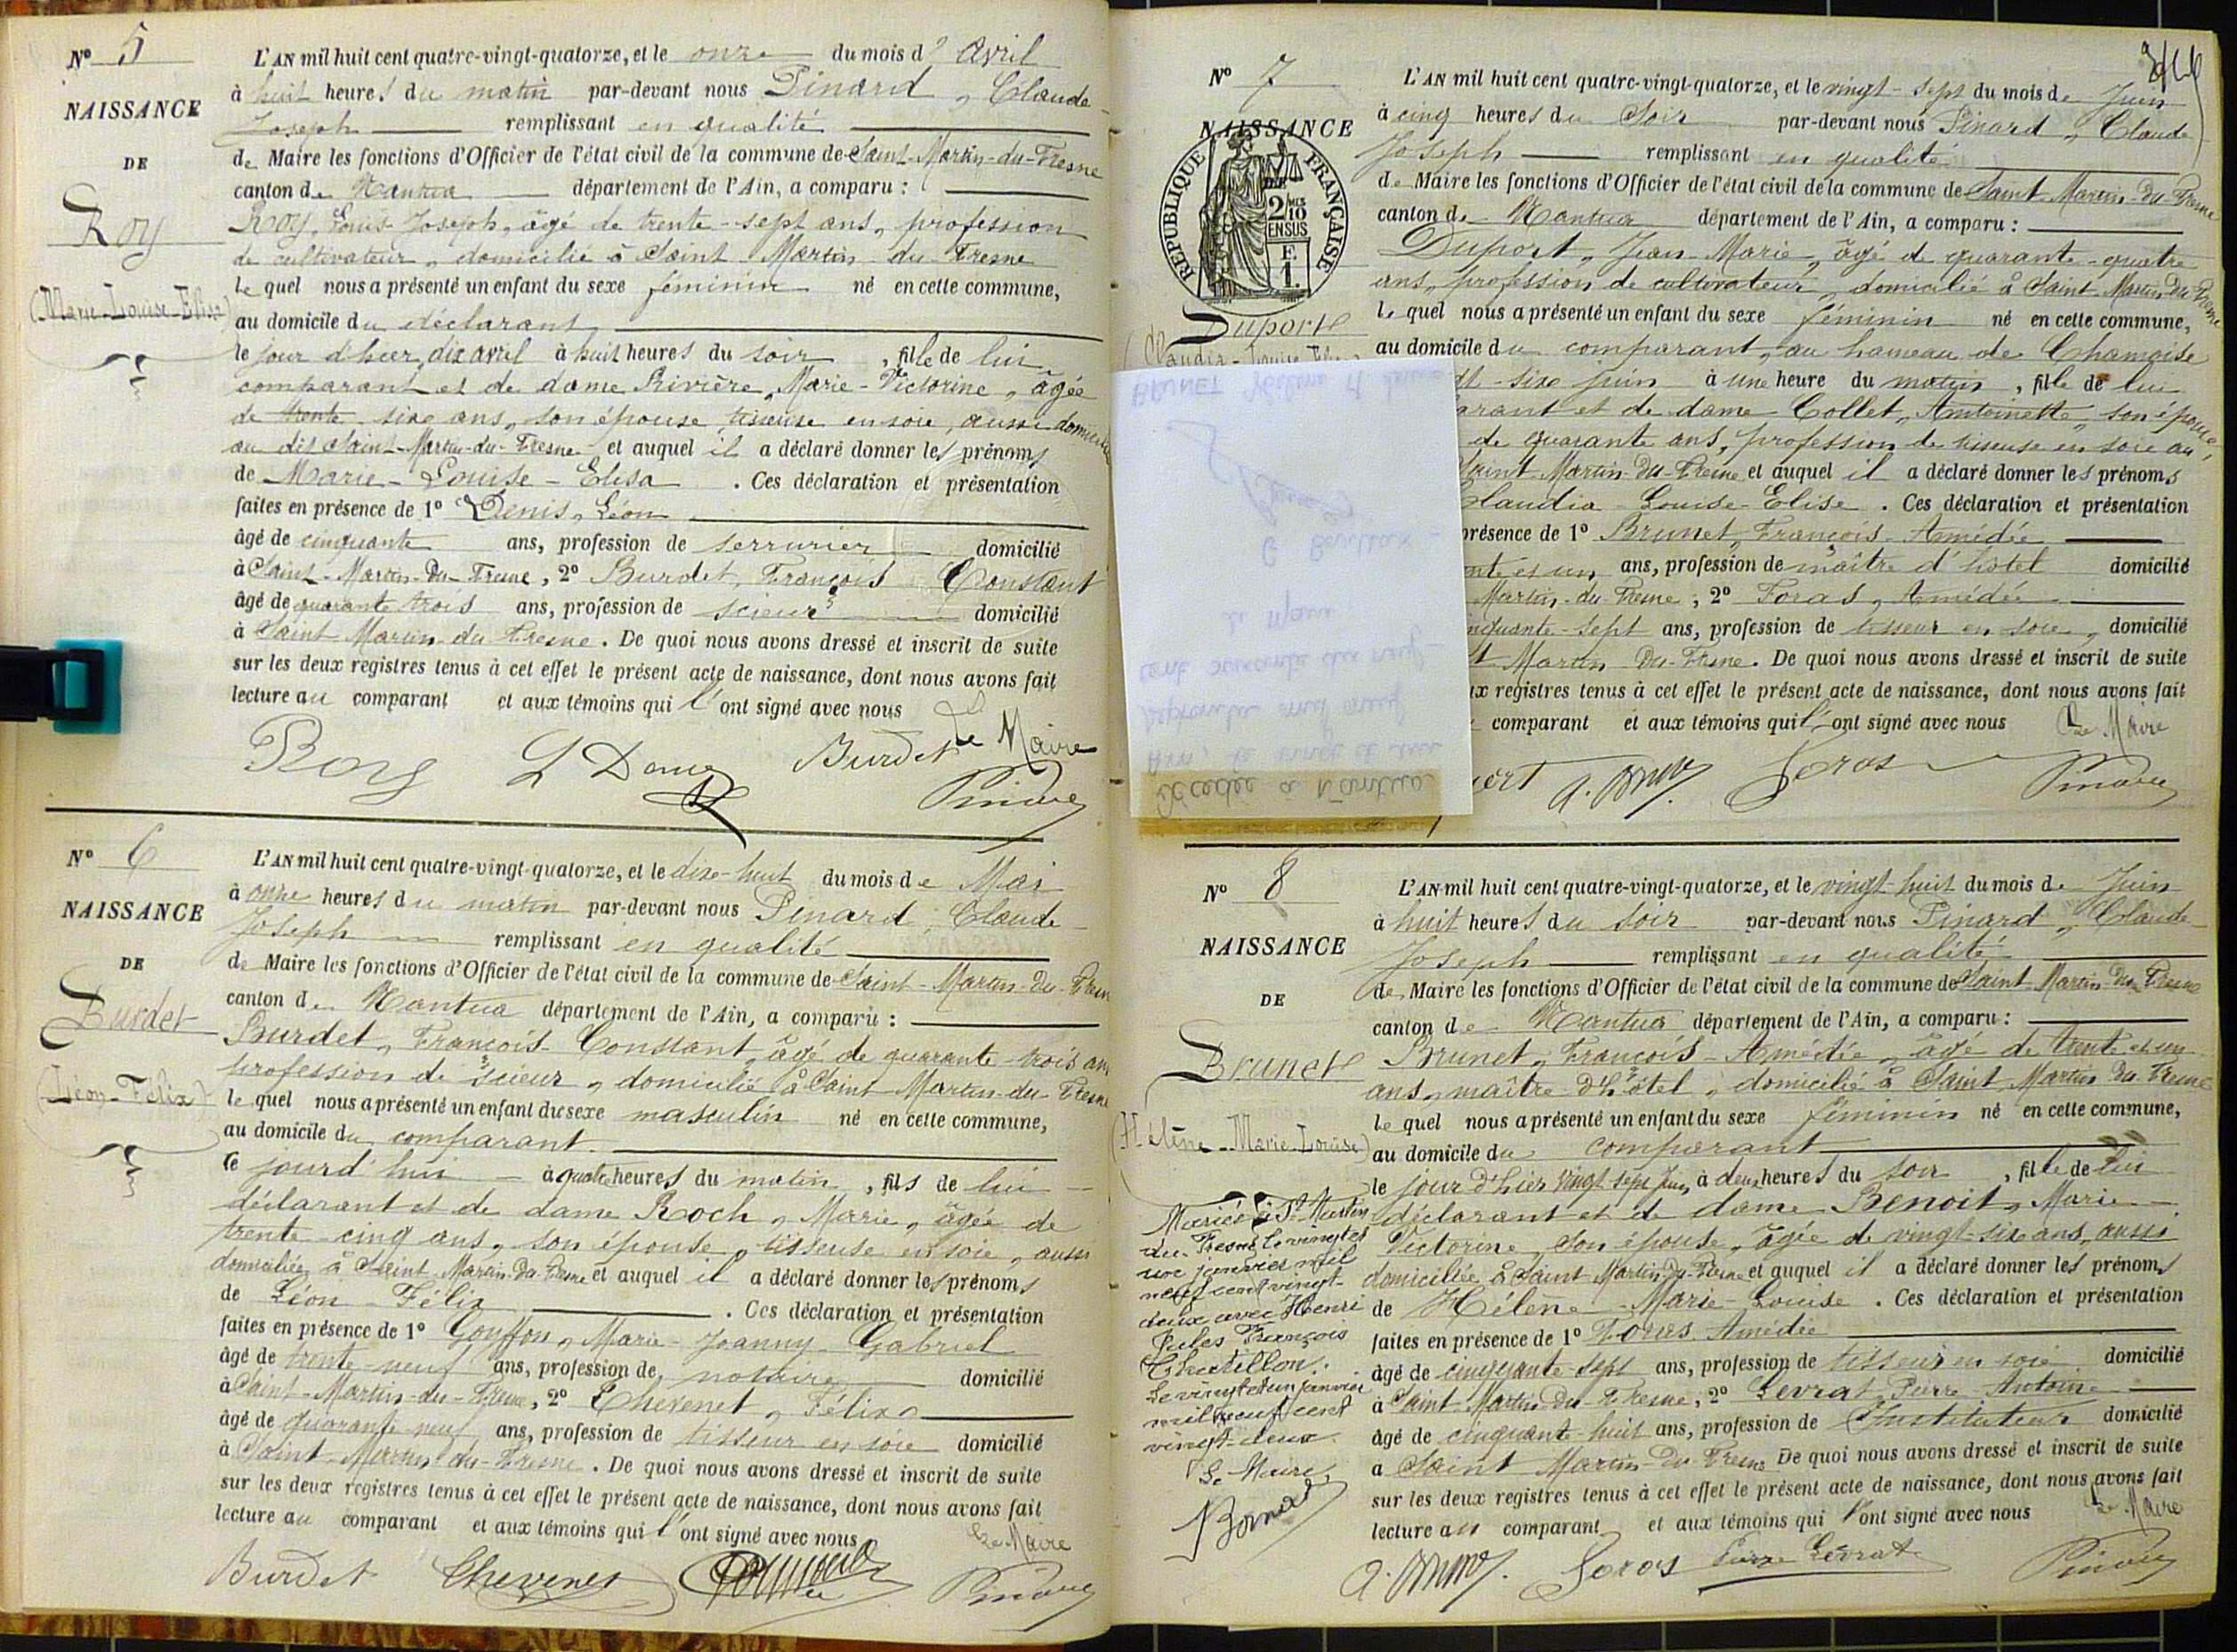 Nº 5
NAISSANCE
DE
Roy
(Marie-Louise-Elisa)
L'AN mil huit cent quatre-vingt-quatorze, et le onze du mois d' Avril
à huit heures du matin par-devant nous Pinard, Claude
Joseph remplissant en qualité
de Maire les fonctions d'Officier de l'état civil de la commune de Saint-Martin-du-Fresne
canton de Nantua département de l'Ain, a comparu :
Roy, Louis Joseph, âgé de trente-sept ans, profession
de cultivateur, domicilié à Saint Martin-du-Fresne
lequel nous a présenté un enfant du sexe féminin né en cette commune,
au domicile du déclarant
le jour d'hier, dix avril à huit heures du soir, fille de lui
comparant et de dame Rivière, Marie-Victorine, âgée
de trente-six ans, son épouse, tisseuse en soie, aussi
au dit Saint-Martin-du-Fresne et auquel il a déclaré donner les prénoms
de Marie-Louise-Elisa. Ces déclaration et présentation
faites en présence de 1º Denis, Léon
âgé de cinquante ans, profession de serrurier domicilié
à Saint-Martin-du-Fresne, 2º Burdet, François Constant
âgé de quarante trois ans, profession de scieur domicilié
à Saint Martin-du-Fresne. De quoi nous avons dressé et inscrit de suite
sur les deux registres tenus à cet effet le présent acte de naissance, dont nous avons fait
lecture au comparant et aux témoins qui l'ont signé avec nous
Le Maire
Roy Burdet Pinard
Nº 6
NAISSANCE
DE
Burdet
(Léon-Félix)
L'AN mil huit cent quatre-vingt-quatorze, et le dix-huit du mois de Mai
à onze heures du matin par-devant nous Pinard, Claude
Joseph remplissant en qualité
de Maire les fonctions d'Officier de l'état civil de la commune de Saint-Martin-du-Fresne
canton de Nantua département de l'Ain, a comparu :
Burdet, François-Constant, âgé de quarante-trois ans
profession de scieur, domicilié à Saint Martin-du-Fresne
lequel nous a présenté un enfant du sexe masculin né en cette commune,
au domicile du comparant.
le jourd'hui à quatre heures du matin, fils de lui
déclarant et de dame Roch, Marie, âgée de
trente-cinq ans, son épouse, tisseuse en soie, aussi
domiciliée à Saint-Martin-du-Fresne et auquel il a déclaré donner les prénoms
de Léon-Félix. Ces déclaration et présentation
faites en présence de 1º Gouffon, Marie-Joanny-Gabriel
âgé de trente-neuf ans, profession de notaire domicilié
à Saint-Martin-du-Fresne, 2º Chevenet, Félix
âgé de quarante-neuf ans, profession de tisseur en soie domicilié
à Saint-Martin-du-Fresne. De quoi nous avons dressé et inscrit de suite
sur les deux registres tenus à cet effet le présent acte de naissance, dont nous avons fait
lecture au comparant et aux témoins qui l'ont signé avec nous
Le Maire
Burdet Chevenet Pinard
Nº 7
NAISSANCE
DE
RÉPUBLIQUE FRANÇAISE
2/10
EN SUS
F.
1.
Duport
L'AN mil huit cent quatre-vingt-quatorze, et le vingt-sept du mois de Juin
à cinq heures du Soir par-devant nous Pinard, Claude
Joseph remplissant en qualité
de Maire les fonctions d'Officier de l'état civil de la commune de Saint Martin-du-Fresne
canton de Nantua département de l'Ain, a comparu :
Duport, Jean-Marie, âgé de quarante-quatre
ans, profession de cultivateur, domicilié à Saint-Martin-du-Fresne
lequel nous a présenté un enfant du sexe féminin né en cette commune,
au domicile du comparant, au hameau de Chamoise
gt-six juin à une heure du matin, fille de lui
arant et de dame Collet, Antoinette, son épouse,
de quarante ans, profession de tisseuse en soie au
Saint Martin-du-Fresne et auquel il a déclaré donner les prénoms
Claudia-Louise-Elise. Ces déclaration et présentation
présence de 1º Brunet, François-Amédée
nte et un ans, profession de maître d'hôtel domicilié
Martin-du-Fresne, 2º Foras, Amédée
nquante-sept ans, profession de tisseur en soie, domicilié
t Martin-du-Fresne. De quoi nous avons dressé et inscrit de suite
ux registres tenus à cet effet le présent acte de naissance, dont nous avons fait
comparant et aux témoins qui l'ont signé avec nous
Le Maire
Foras Pinard
Décédée à Nantua
Ain, le vingt et un
septembre mil neuf
cent soixante dix neuf
le Maire
BRUNET Hélène M Louise
Nº 8
NAISSANCE
DE
Brunet
(Hélène-Marie-Louise)
L'AN mil huit cent quatre-vingt-quatorze, et le vingt-huit du mois de Juin
à huit heures du soir par-devant nous Pinard, Claude
Joseph remplissant en qualité
de Maire les fonctions d'Officier de l'état civil de la commune de Saint-Martin-du-Fresne
canton de Nantua département de l'Ain, a comparu :
Brunet, François-Amédée, âgé de trente et un
ans, maître d'hôtel, domicilié à Saint Martin du Fresne
lequel nous a présenté un enfant du sexe féminin né en cette commune,
au domicile du comparant
le jour d'hier vingt-sept Juin, à deux heures du soir, fille de lui
déclarant et de dame Benoit, Marie-
Victorine, son épouse, âgée de vingt-six ans, aussi
domiciliée à Saint-Martin-du-Fresne et auquel il a déclaré donner les prénoms
de Hélène-Marie-Louise. Ces déclaration et présentation
faites en présence de 1º Foras, Amédée
âgé de cinquante-sept ans, profession de tisseur en soie domicilié
à Saint-Martin-du-Fresne, 2º Levrat, Pierre-Antoine
âgé de cinquante-huit ans, profession de Instituteur domicilié
à Saint Martin-du-Fresne De quoi nous avons dressé et inscrit de suite
sur les deux registres tenus à cet effet le présent acte de naissance, dont nous avons fait
lecture au comparant et aux témoins qui l'ont signé avec nous
Le Maire
Foras Pierre Levrat Pinard
Mariée à St Martin
du-Fresne le vingt et
un janvier mil
neuf cent vingt-
deux avec Henri
Jules François
Chatillon.
Le vingt et un janvier
mil neuf cent
vingt-deux.
Le Maire,